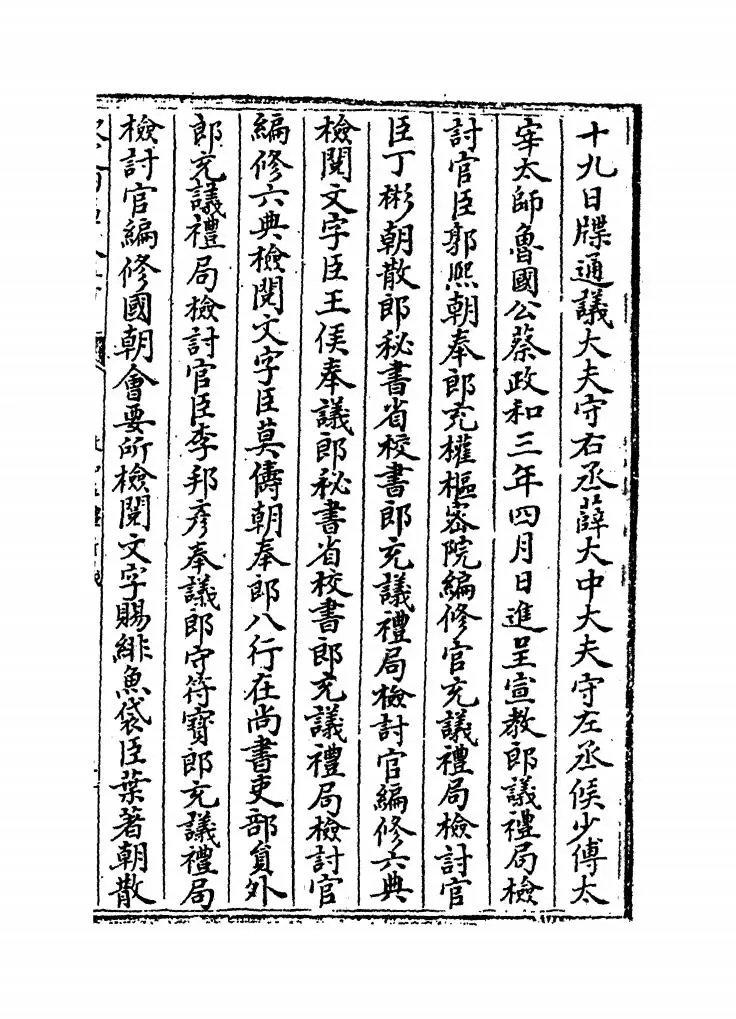 十九日牒通議大夫守右丞薛大中大夫守左丞侯少傅太
宰太師魯國公蔡政和三年四月日進呈宣教郎議禮局檢
討官臣郭熙朝奉郎充權樞密院編修官充議禮局檢討官
臣丁彬朝散郎秘書省校書郎充議禮局檢討官編修六典
檢閱文字臣王俟奉議郎秘書省校書郎充議禮局檢討官
編修六典檢閱文字臣莫儔朝奉郎八行在尚書吏部員外
郎充議禮局檢討官臣李邦彥奉議郎守符寶郎充議禮局
檢討官編修國朝會要所檢閱文字賜緋魚袋臣葉著朝散